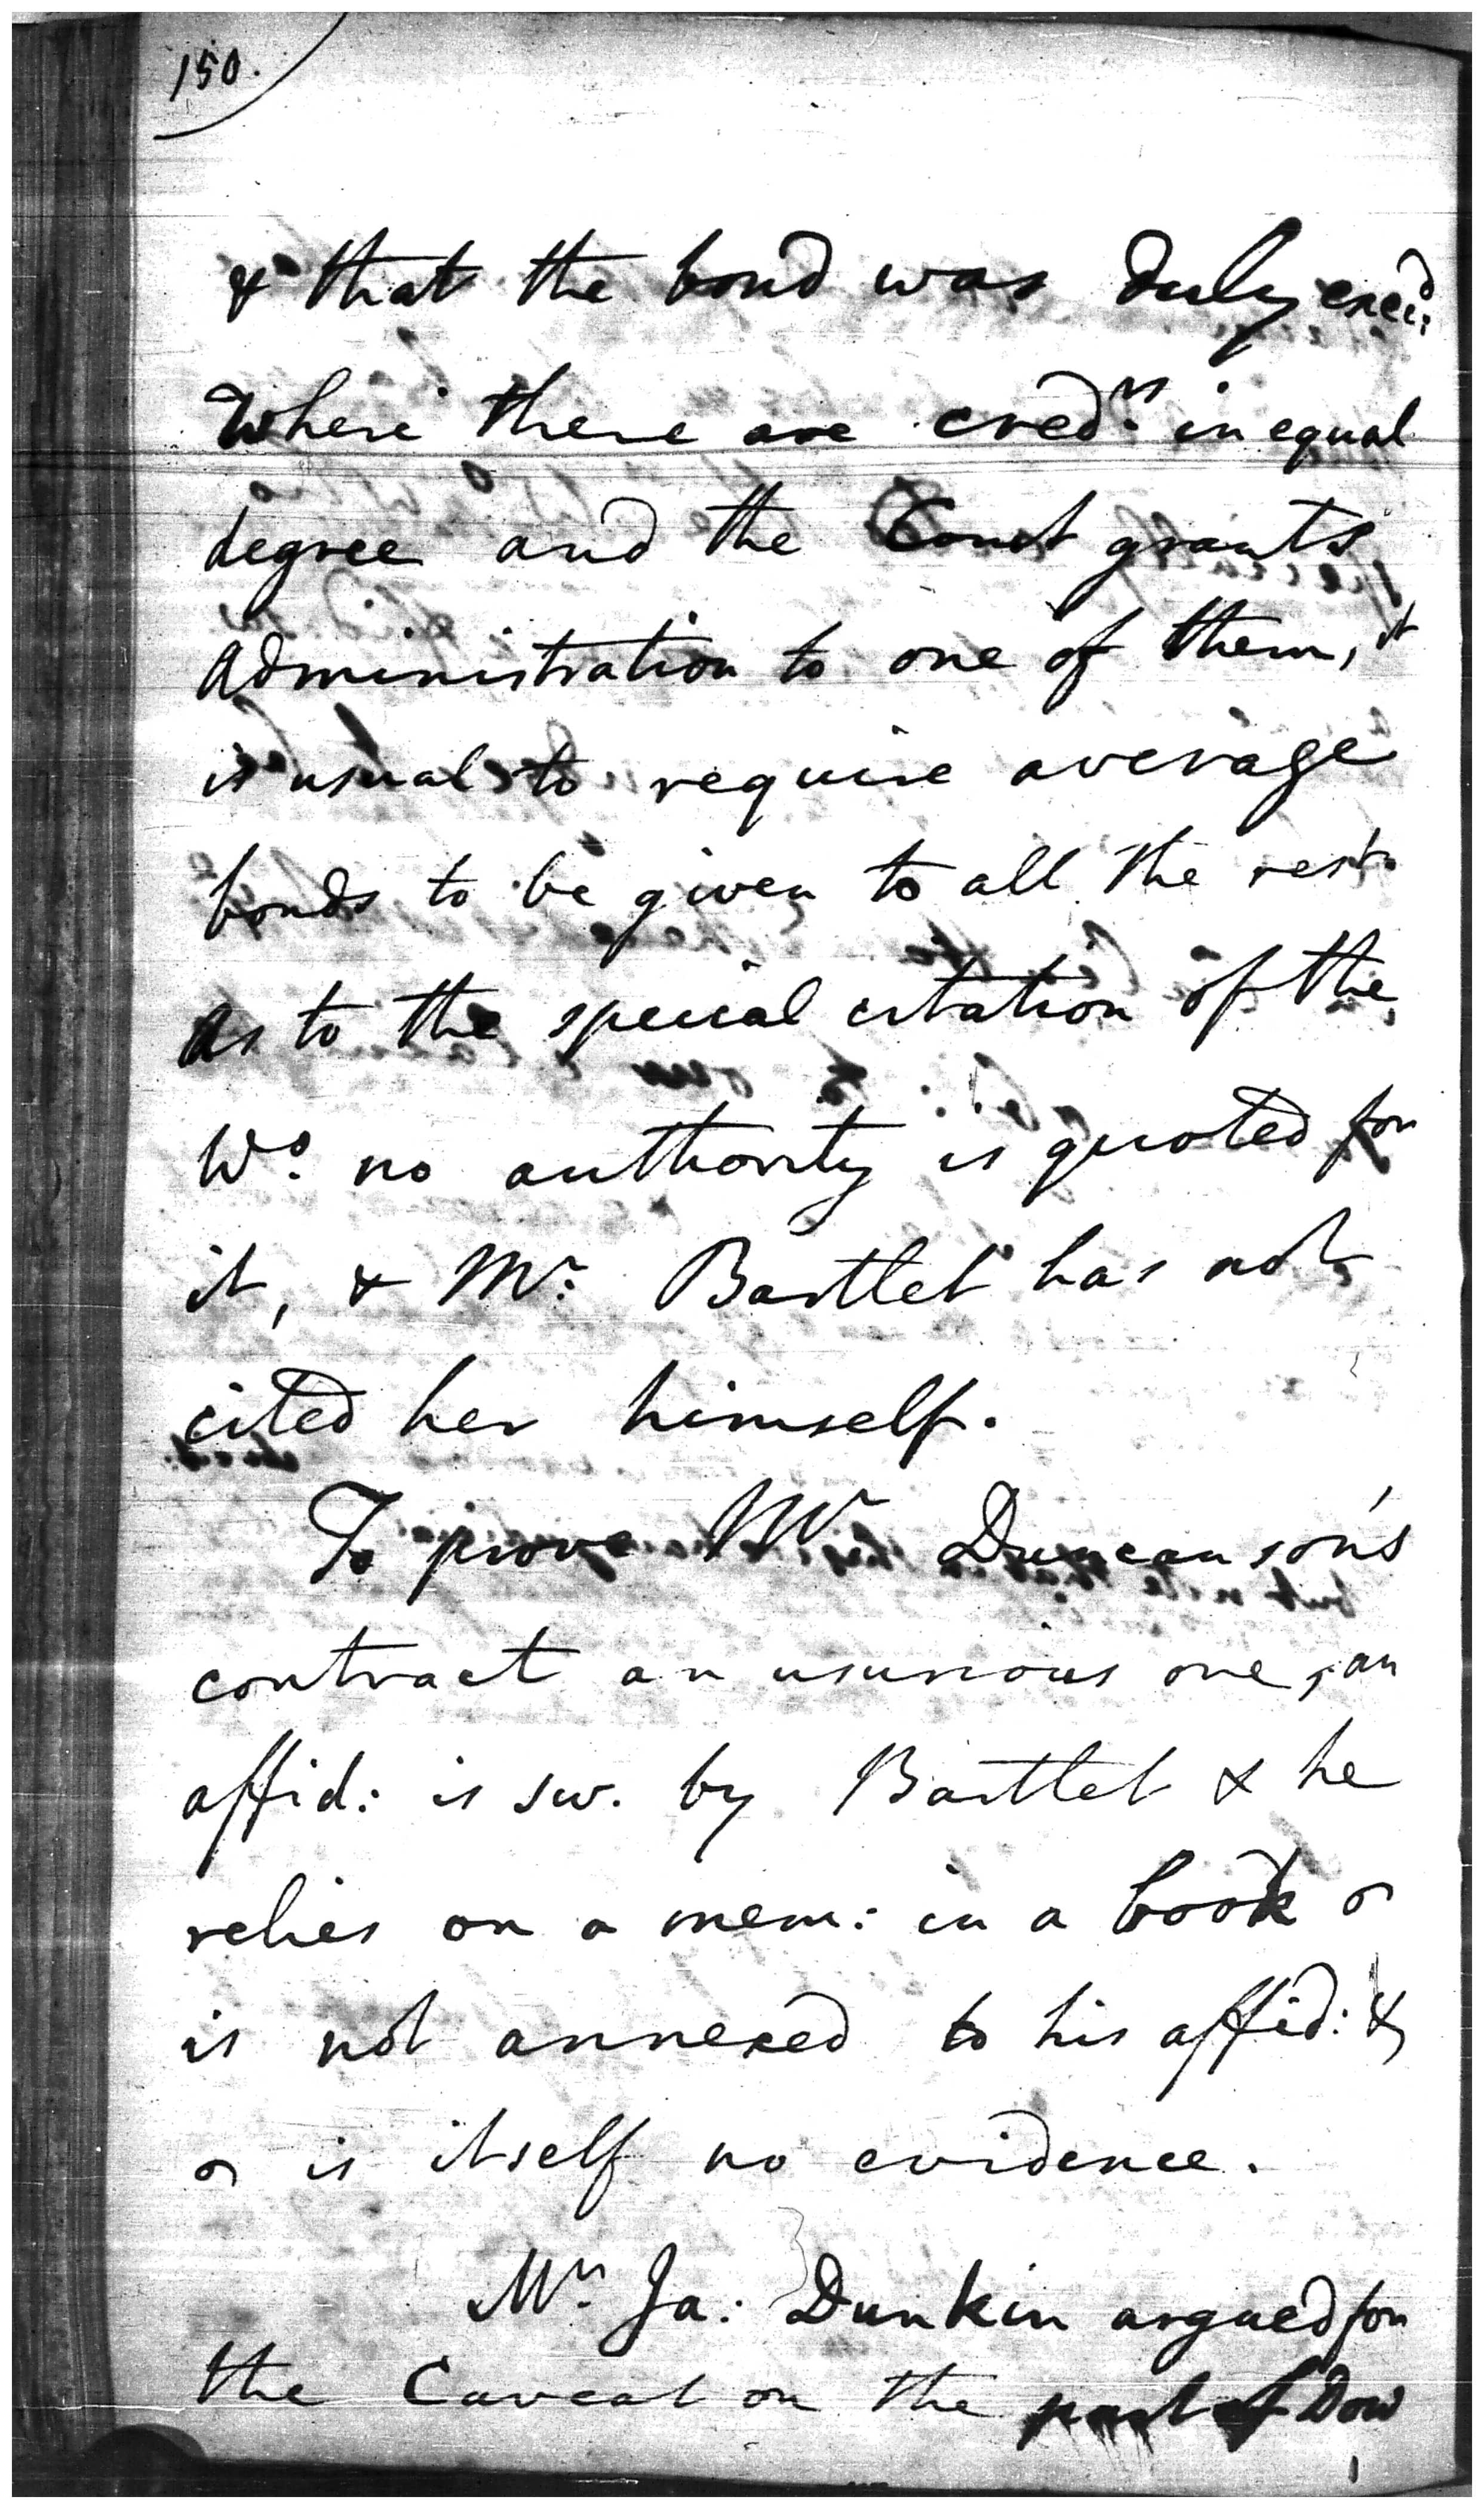 150.
& that the bond was duly exed:
Where there are credrs. in equal
degree and the Court grants
administration to one of them, it
is usual to require average
bonds to be given to all the rest.
As to the special citation of the
Wo. no authority is quoted for
it, & Mr. Bartlet has not
cited her himself.
To prove Mr Duncanson's
contract an usurious one, an
affid: is sw. by Bartlet & he
relies on a mem: in a book
is not annexed to his affid: &
is itself no evidence.
Mr. Ja: Dunkin argued for
the Caveat on the part of Dow